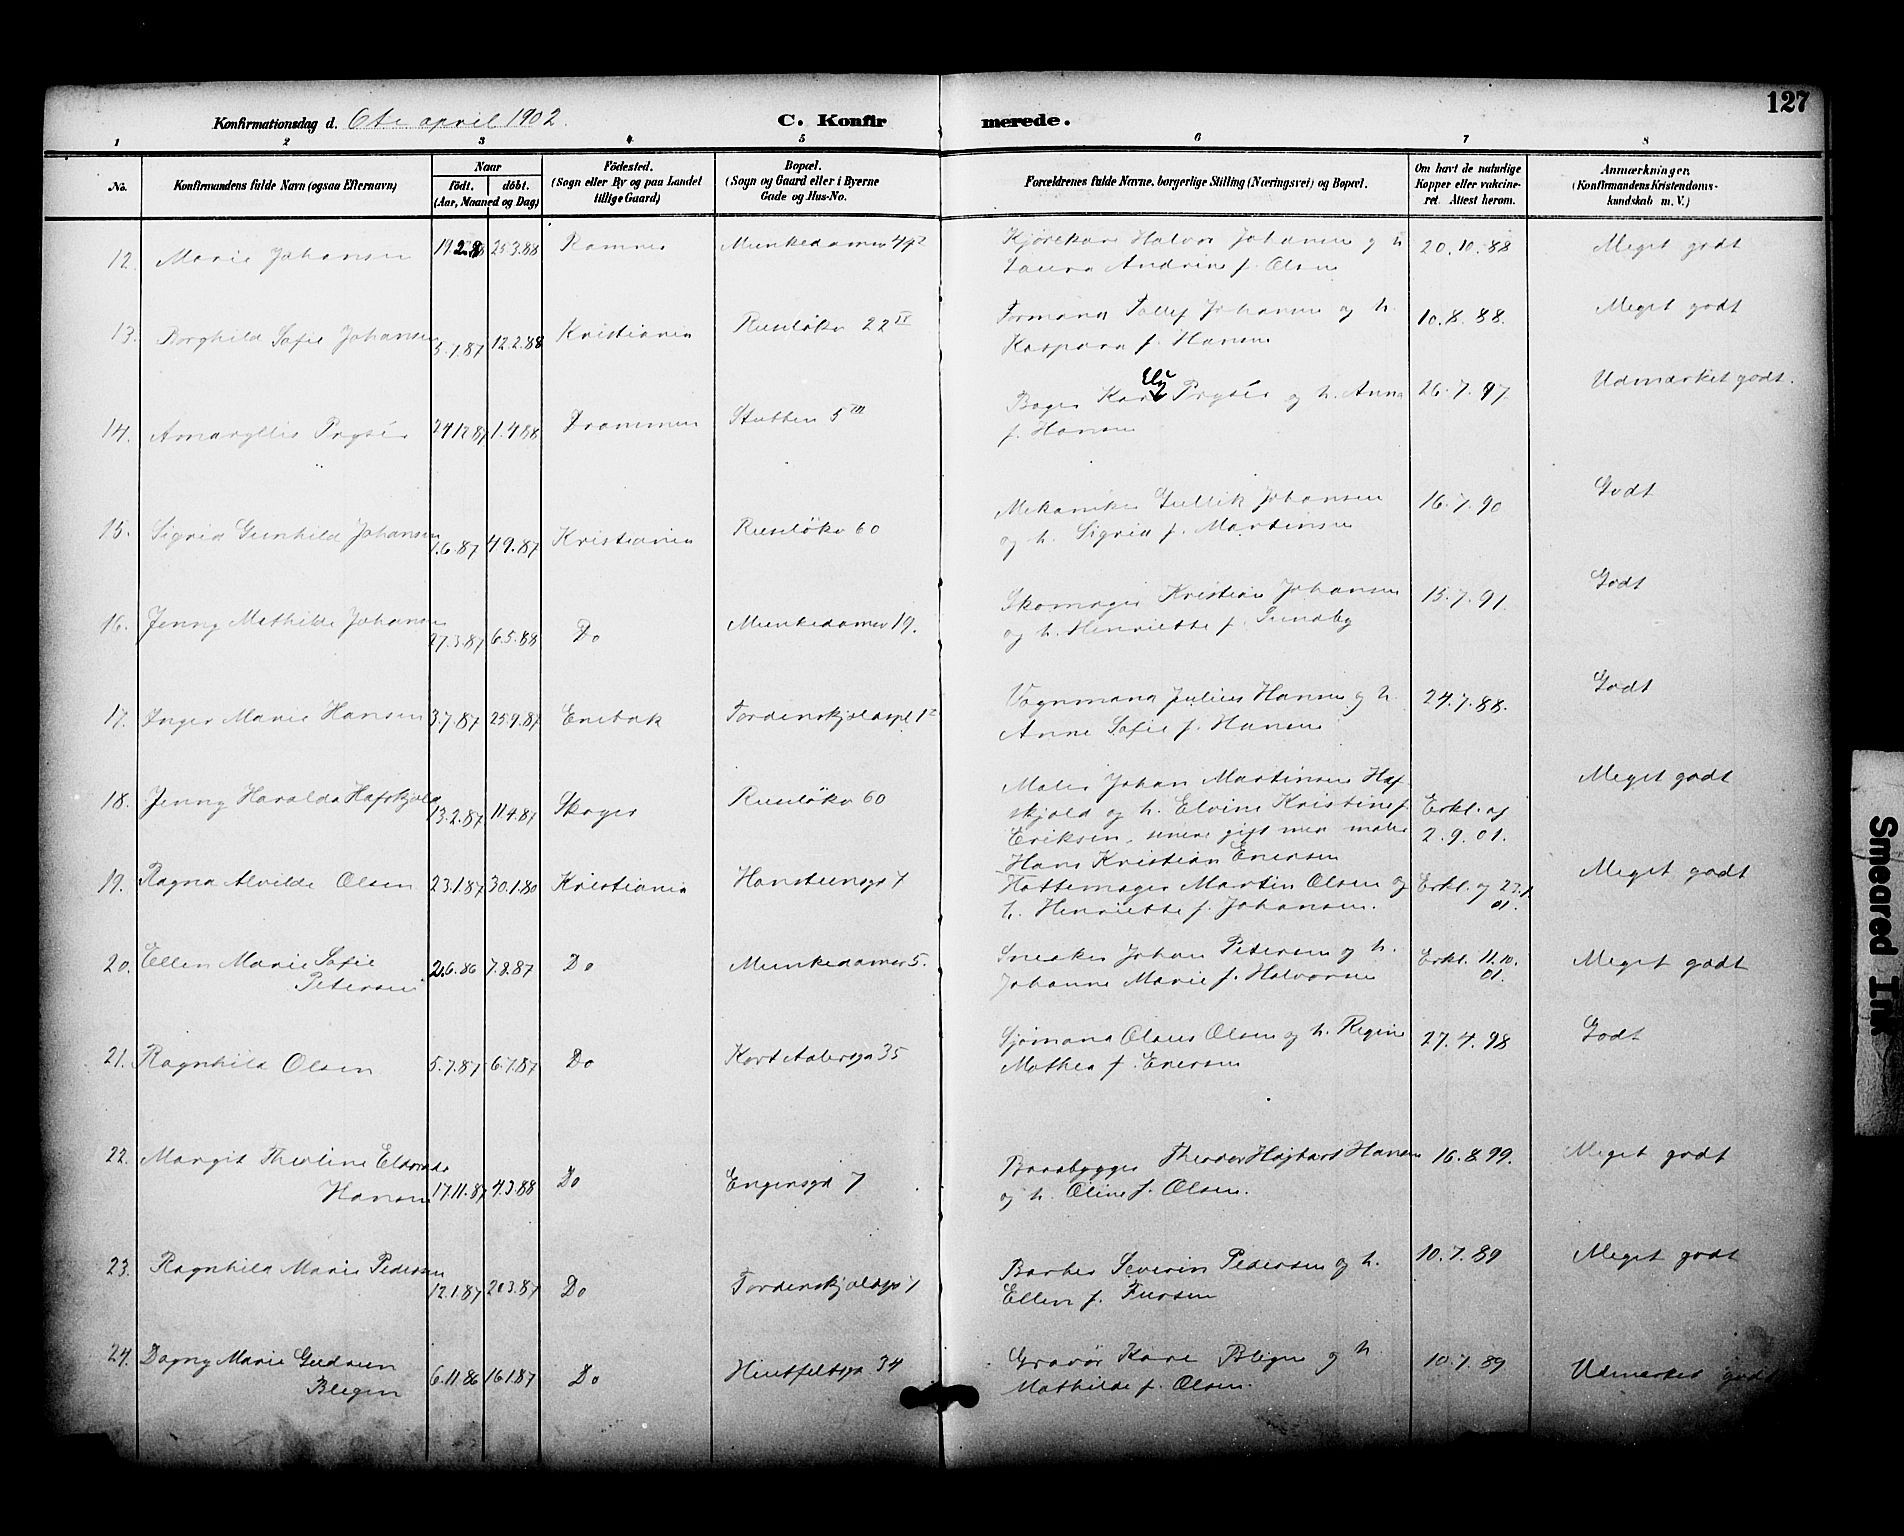 127
Konfirmationsdag d. 6te april 1902.
C. Konfirmerede.
1 2 3 4 5 6 7 8
No.
Konfirmandens fulde Navn (ogsaa Efternavn)
Naar
födt. döbt.
(Aar, Maaned og Dag)
Födested.
(Sogn eller By og paa Landet
tillige Gaard)
Bopæl.
(Sogn og Gaard eller i Byerne
Gade og Hus-No.
Forældrenes fulde Navne, borgerlige Stilling (Næringsvei) og Bopæl.
Om havt de naturlige
Kopper eller vakcine-
ret. Attest herom.
Anmærkninger.
(Konfirmandens Kristendoms-
kundskab m. V.)
12. Marie Johansen 25.3.88 Ramnes Munkedamsv
Kjørekarl Halvor Johansen og h. 20.10.88 Meget godt
Laura Andrine f. Olsen
13. Borghild Sofie Johansen 12.2.88 Kristiania Ruseløkv 22 IV
Formand Tollef Johansen og h. 10.8.88. Meget godt
Kaspara f. Hansen
14. Amaryllis Prytz 1.4.88 Drammen Stubben 5 III
Bager Karl Ely og h. Anna 26.7.97 Udmærket godt.
f. Hansen
15. Sigrid Gunhild Johansen 1.6.87 4.9.87 Kristiania Ruseløkv 60
Mekaniker Gullik Johansen 16.7.90 Godt
og h. Sigrid f. Martinsen
16. Jenny Mathilde Johansen 27.3.87 6.5.88 Do Munkedamsv 19.
Skomager Kristian Johansen 15.7.91. Godt
og h. Henriette f. Sundby
17. Inger Marie Hansen 3.7.87 25.9.87 Enebak Tordenskjoldspl 1
Vognmand Julius Hansen og h. 24.7.88. Godt
Anne Sofie f. Hansen
18. Jenny Haralda Hafskjold 13.2.87 11.4.87 Skoger Ruseløkv 60
Maler Johan Martinsen Haf
skjold og h. Elvine Kristine f. Erkl. af Meget godt
Eriksen, senere gift med maler 2.9.01.
Hans Kristian Enersen
19. Ragna Alvilde Olsen 23.1.87 30.1.80 Kristiania Hansteensgd 7
Hattemager Martin Olsen og Erkl. af Meget godt
h. Henriette f. Johansen. 01.
20. Ellen Marie Sofie 7.8.87 Do Munkedamsv 5.
Petersen
Snedker Johan Petersen og h. Erkl. 11.10. Meget godt
Johanne Marie f. Halvorsen 01.
21. Ragnhild Olsen 5.7.87 Do Kort Adlersgd 35
Sjømand Olaus Olsen og h. Regine 27.4.98 Godt
Mathea f. Enersen
22. Margit Theoline
Hansen 17.11.87 4.3.88 Do Engensgd 7
Baadbygger Theodor Hansen 16.8.99. Meget godt
og h. Oline f. Olsen.
23. Ragnhild Marie Pedersen 12.1.87 20.3.87 Do Tordenskjoldspl 1
Barber Severin Pedersen og h. 10.7.89 Meget godt
Ellen f. Iversen
24. Dagny Marie Gudrun 6.11.86 16.1.87 Do Huitfeldtsgd 34
Blegen
Gravør Karl Blegen og h. 10.7.89 Udmærket godt
Mathilde f. Olsen.
Smeared Ink